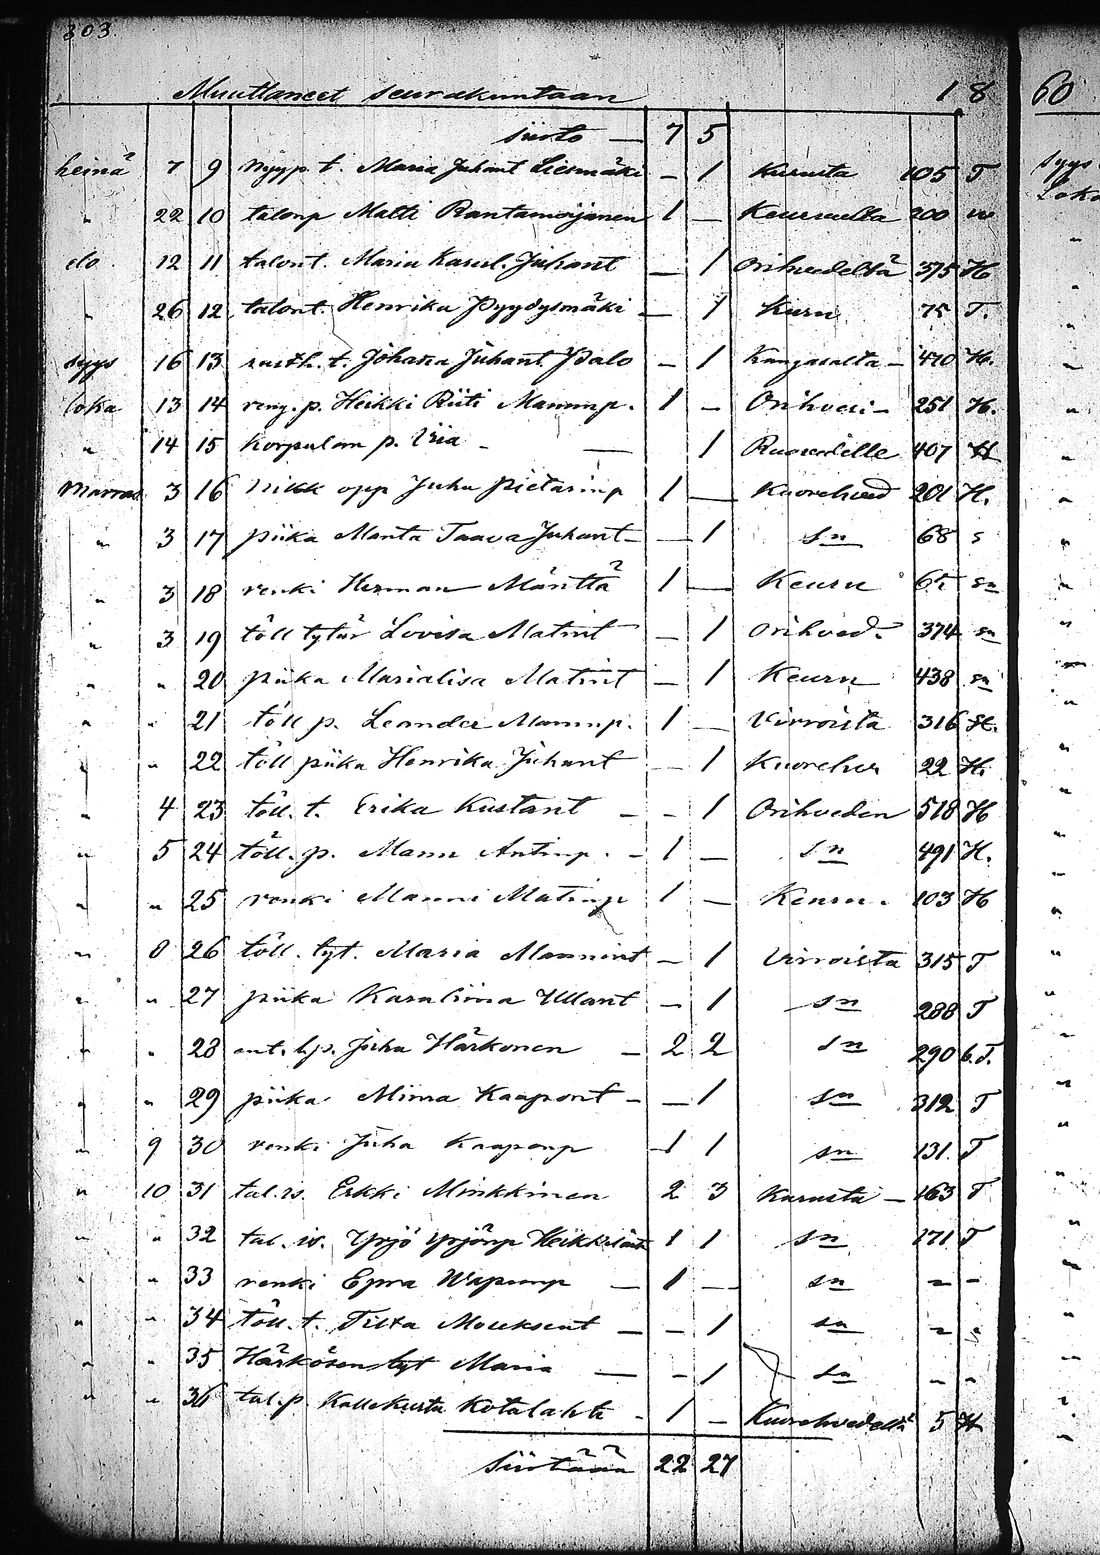 303.
Muuttaneet seurakuntaan 18 60
siirto — 7 5
heinä 7 9 nyyp. t. Maria Juhant Liesmäki — 1 Kurusta 105 T
" 22 10 talonp Matti Rantamoijanen 1 — Keuruulta 200
elo 12 11 talont. Maria Karul. Juhant — 1 Orihvedeltä 375 H
" 26 12 talont. Henrika Pyydysmäki — 1 Kuru 75 T.
syys 16 13 rusth. t. Johana Juhant Ydalo — 1 Kangasalta — 410 H.
loka 13 14 reng. p. Heikki Riiti Mannp. 1 — Orihvesi — 251 H.
" 14 15 Korpulan p. Viia — — 1 Ruovedille 407 H
Marras 3 16 nikk opp Juha Pietarinp 1 — Kuorehved 201 H.
" 3 17 piika Manta Taava Juhant — — 1 sn 68 s
" 3 18 renki Herman Mänttä 1 — Keuru 65 sn
" 3 19 töll tytär Lovisa Matint — 1 Orihved. 374 sn
" " 20 piika Marialisa Matint — 1 Keuru 438 sn
" " 21 töll p. Leander Mannp. 1 — Virroista 316 H.
" " 22 töll piika Henrika Juhant — 1 Kuorehve 22 H.
" 4 23 töll. t. Erika Kustant — — 1 Orihveden 518 H
" 5 24 töll. p. Mann Antinp. — 1 — sn 491 H.
" " 25 renki Manni Matinp 1 — Keuru. 103 H
" 8 26 töll. tyt. Maria Mannint — 1 Virroista 315 T
" " 27 piika Karaliina Ullant — 1 sn 288 T
" " 28 ent. lp. Juha Härkönen — 2 2 sn 290 b.T.
" " 29 piika Miina Kaapont — — 1 sn 312 T
" 9 30 renki Juha Kaaponp 1 1 sn 131. T
" 10 31 tal. rs. Erkki Minkkinen 2 3 Kurusta — 163 T
" " 32 tal. iv. Yrjö Yrjönp Heikkilästä 1 1 sn 171 T
" " 33 renki Epra Wapunp — 1 — sn " "
" " 34 töll. t. Tilta Mouksent — — 1 sn " "
" " 35 Härkösen tyt Maria — — 1 sn " "
" " 36 tal. p. Kallekusta Kotalahti — 1 — Kuorehvedeltä 5 H
Siirtään 22 27
syys
Loka